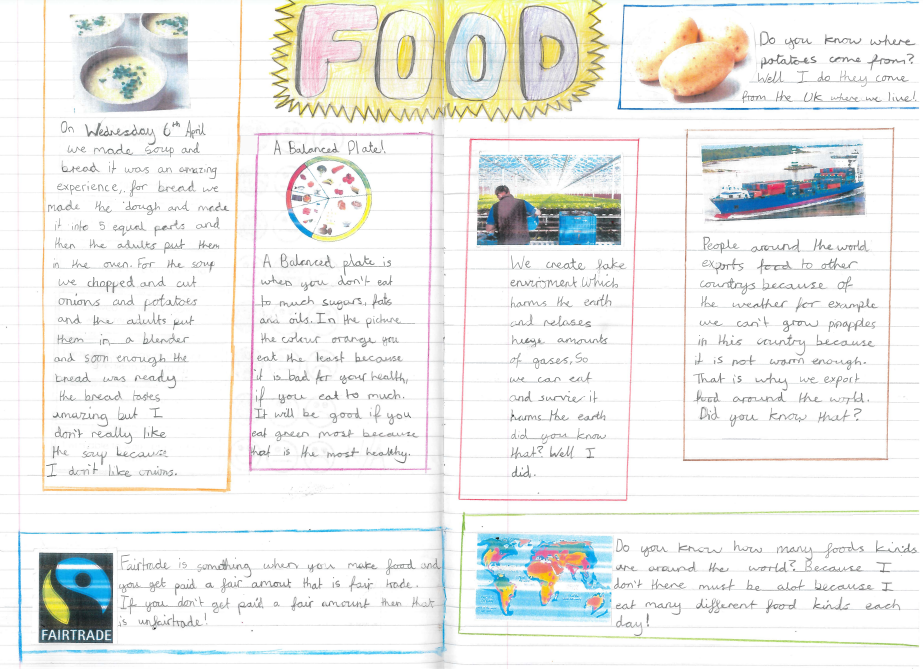 FOOD
Do you know where
potatoes come from?
Well I do they come
from the UK where we live!
On Wednesday 6th April
we made soup and
bread it was an amazing
experience, for bread we
made the dough and made
it into 5 equal parts and
then the adults put them
in the oven. For the soup
we chopped and cut
onions and potatoes
and the adults put
them in a blender
and soon enough the
bread was ready
the bread tastes
amazing but I
don't really like
the soup because
I don't like onions.
A Balanced Plate!
A Balanced plate is
when you don't eat
to much sugars, fats
and oils. In the picture
the colour orange you
eat the least because
it is bad for your health,
if you eat to much.
It will be good if you
eat green most because
that is the most healthy.
We create fake
enviroment which
harms the erth
and relases
huege amounts
of gases. So
we can eat
and survie it
harms the earth
did you know
that? Well I
did.
People around the world
exports food to other
countrys because of
the weather for example
we can't grow pinapples
in this country because
it is not warm enough.
That is why we export
food around the world.
Did you know that?
FAIRTRADE
Fairtrade is something when you make food and
you get paid a fair amout that is fair trade.
If you don't get paid a fair amount then that
is unfairtrade!
Do you know how many foods kinds
are around the world? Because I
don't there must be alot because I
eat many different food kinds each
day!